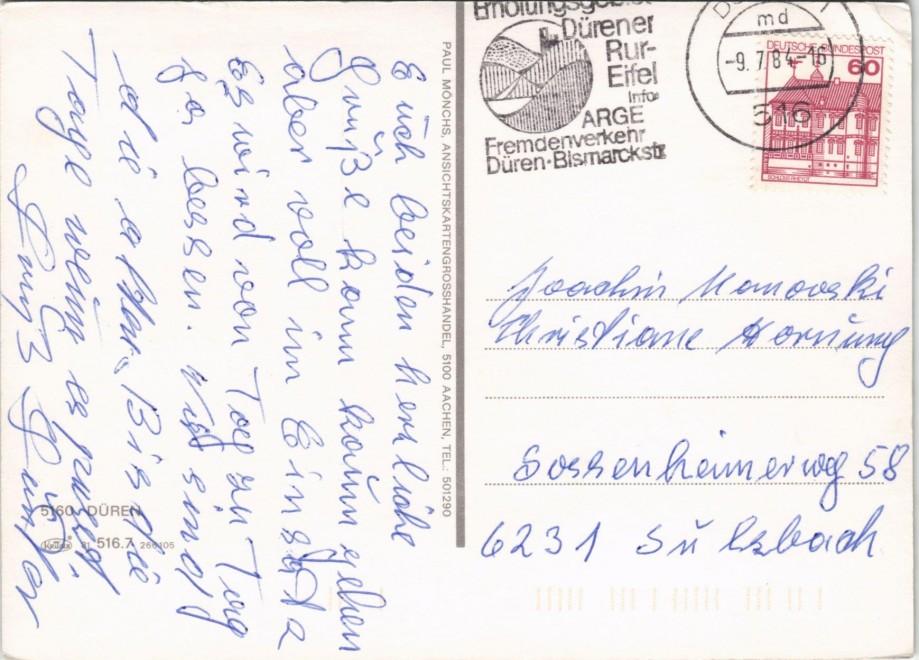 Euch beiden herzliche
Grüße kann kaum gehen
aber voll im Einsatz
Es wird von Tag zu Tag
besser. Wir sind
die
Bis die
Tage wenn es
Günter
PAUL MÖNCHS, ANSICHTSKARTENGROSSHANDEL, 5100 AACHEN, TEL.: 501290
5160 DÜREN
81 516.7 266105
Erholungsgebiet
Dürener
Rur-
Eifel
Info:
ARGE
Fremdenverkehr
Düren·Bismarckstr
md
-9.7.84-16
516
DEUTSCHE BUNDESPOST
60
SCHLOSS RHEYDT
Joachim Manowski
Christiane Hornung
Sossenheimerweg 58
6231 Sulzbach